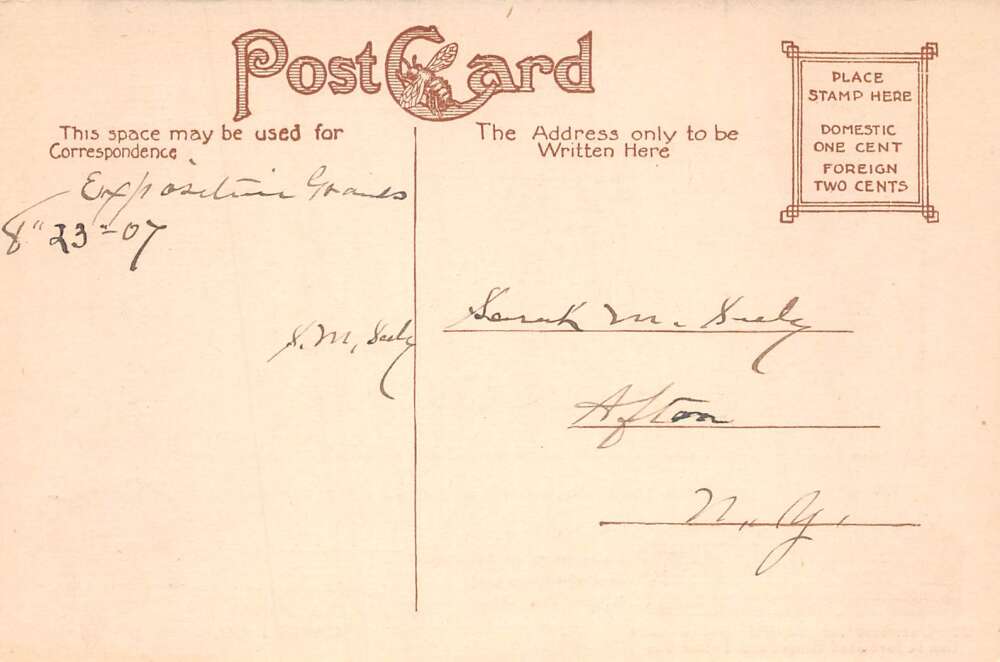 Post Card
This space may be used for
Correspondence
The Address only to be
Written Here
PLACE
STAMP HERE
DOMESTIC
ONE CENT
FOREIGN
TWO CENTS
Exposition
8" 23-07
S. M. Seely
Sarah M. Seely
Afton
N. Y.